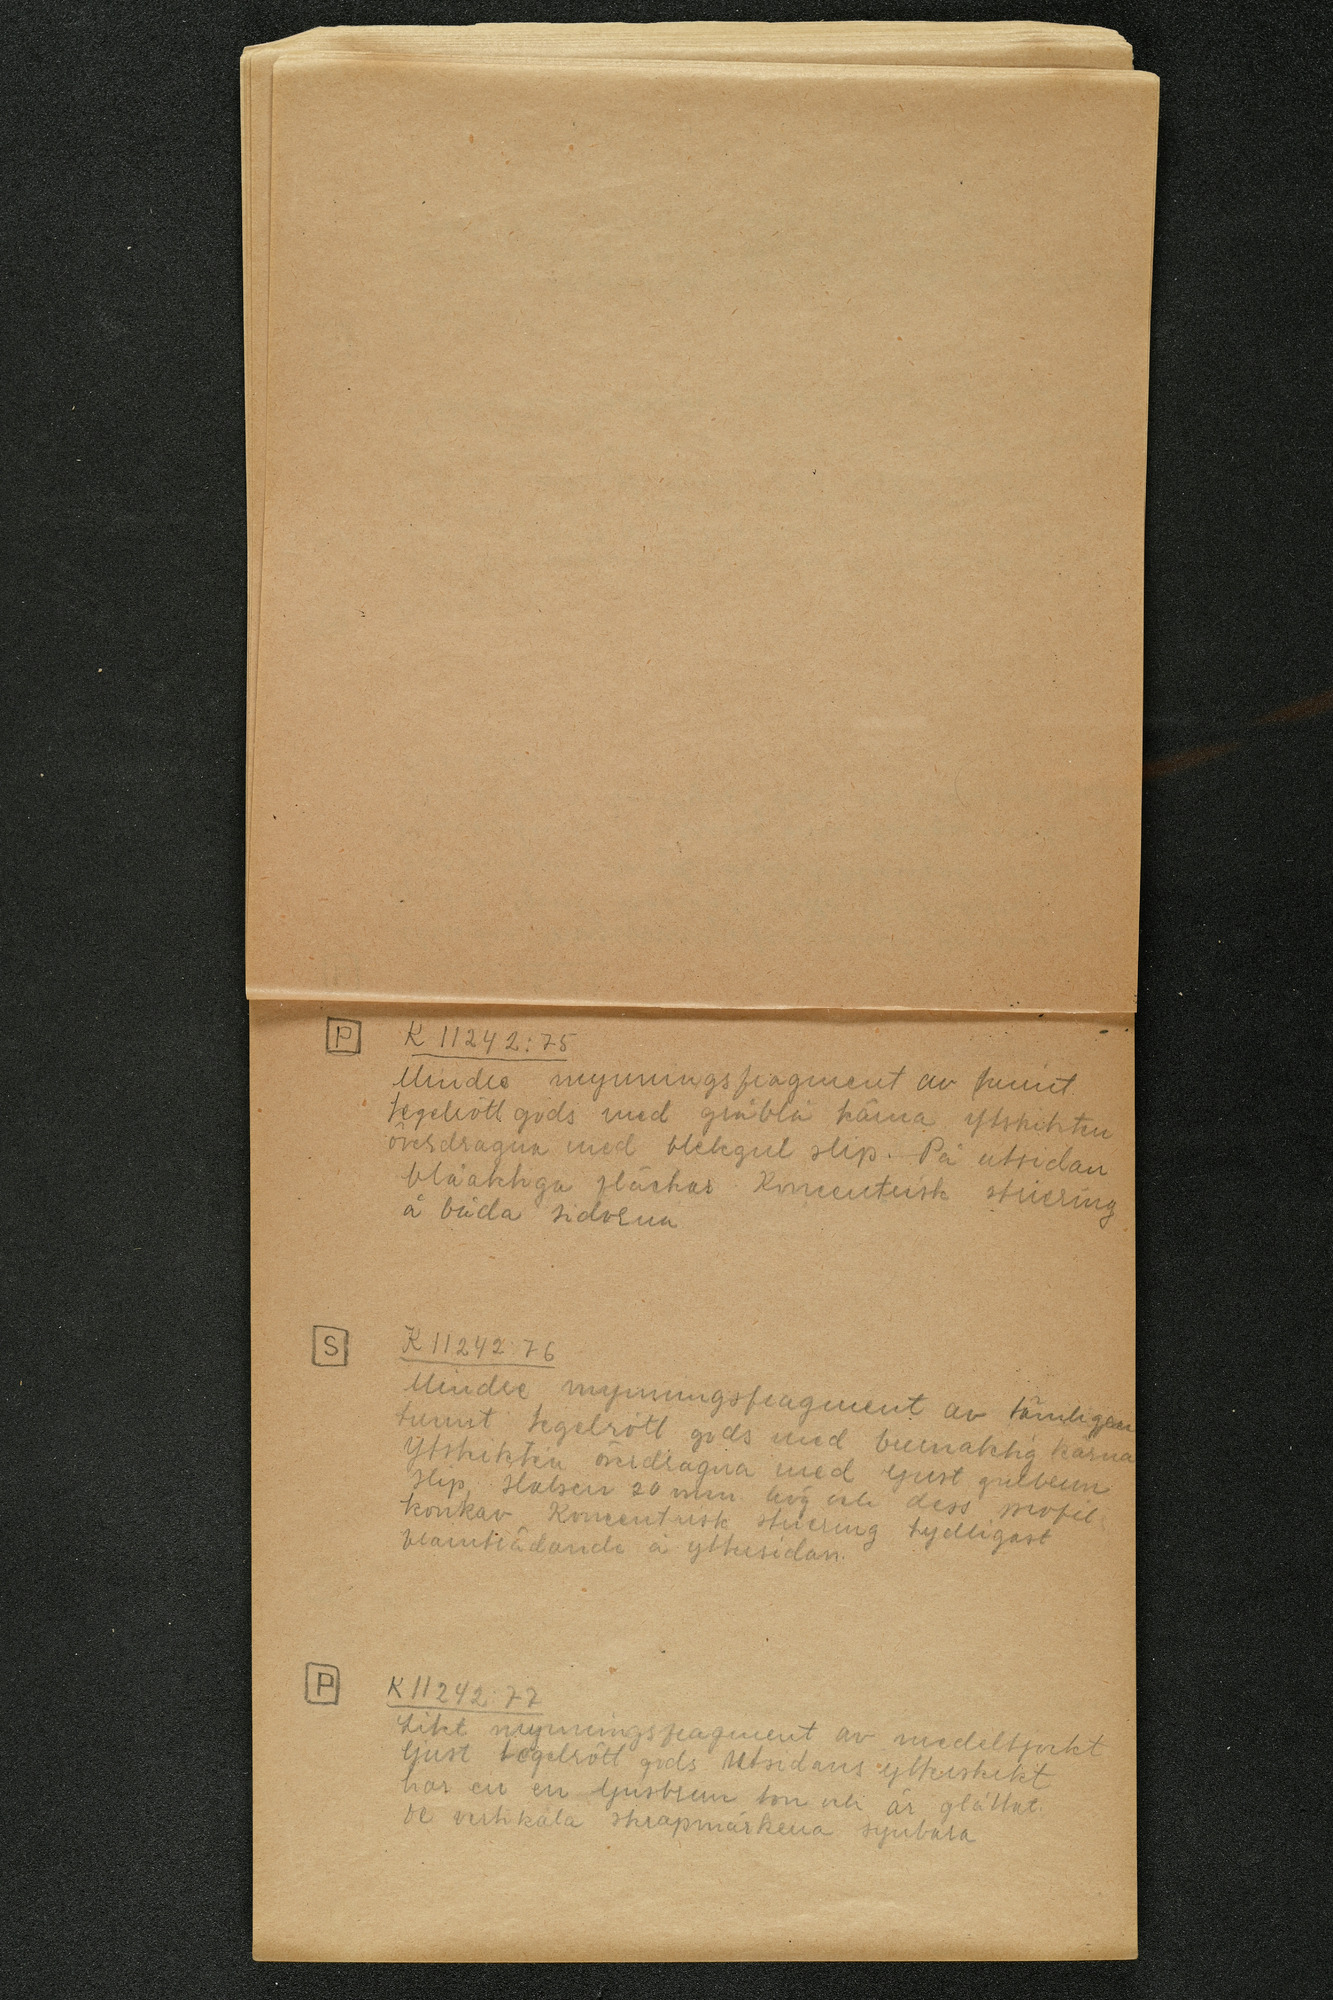 P K 11242:75
Mindre mynningsfragment av tunnt
tegelrött gods med gråblå kärna Ytskikten
överdragna med blekgul slip. På utsidan
blåaktiga fläckar. Koncentrisk striering
å båda sidorna
S K 11242:76
Mindre mynningsfragment av tämligen
tunnt tegelrött gods med brunaktig kärna
Ytskikten överdragna med ljust gulbrun
slip. Halsen 20 mm hög och dess profil
konkav. Koncentrisk striering tydligast
framträdande å yttersidan.
P K 11242:77
Litet mynningsfragment av medeltjockt
ljust tegelrött gods Utsidans ytterskikt
har en en ljusbrun ton och är glättat.
De vertikala skrapmärkena synbara